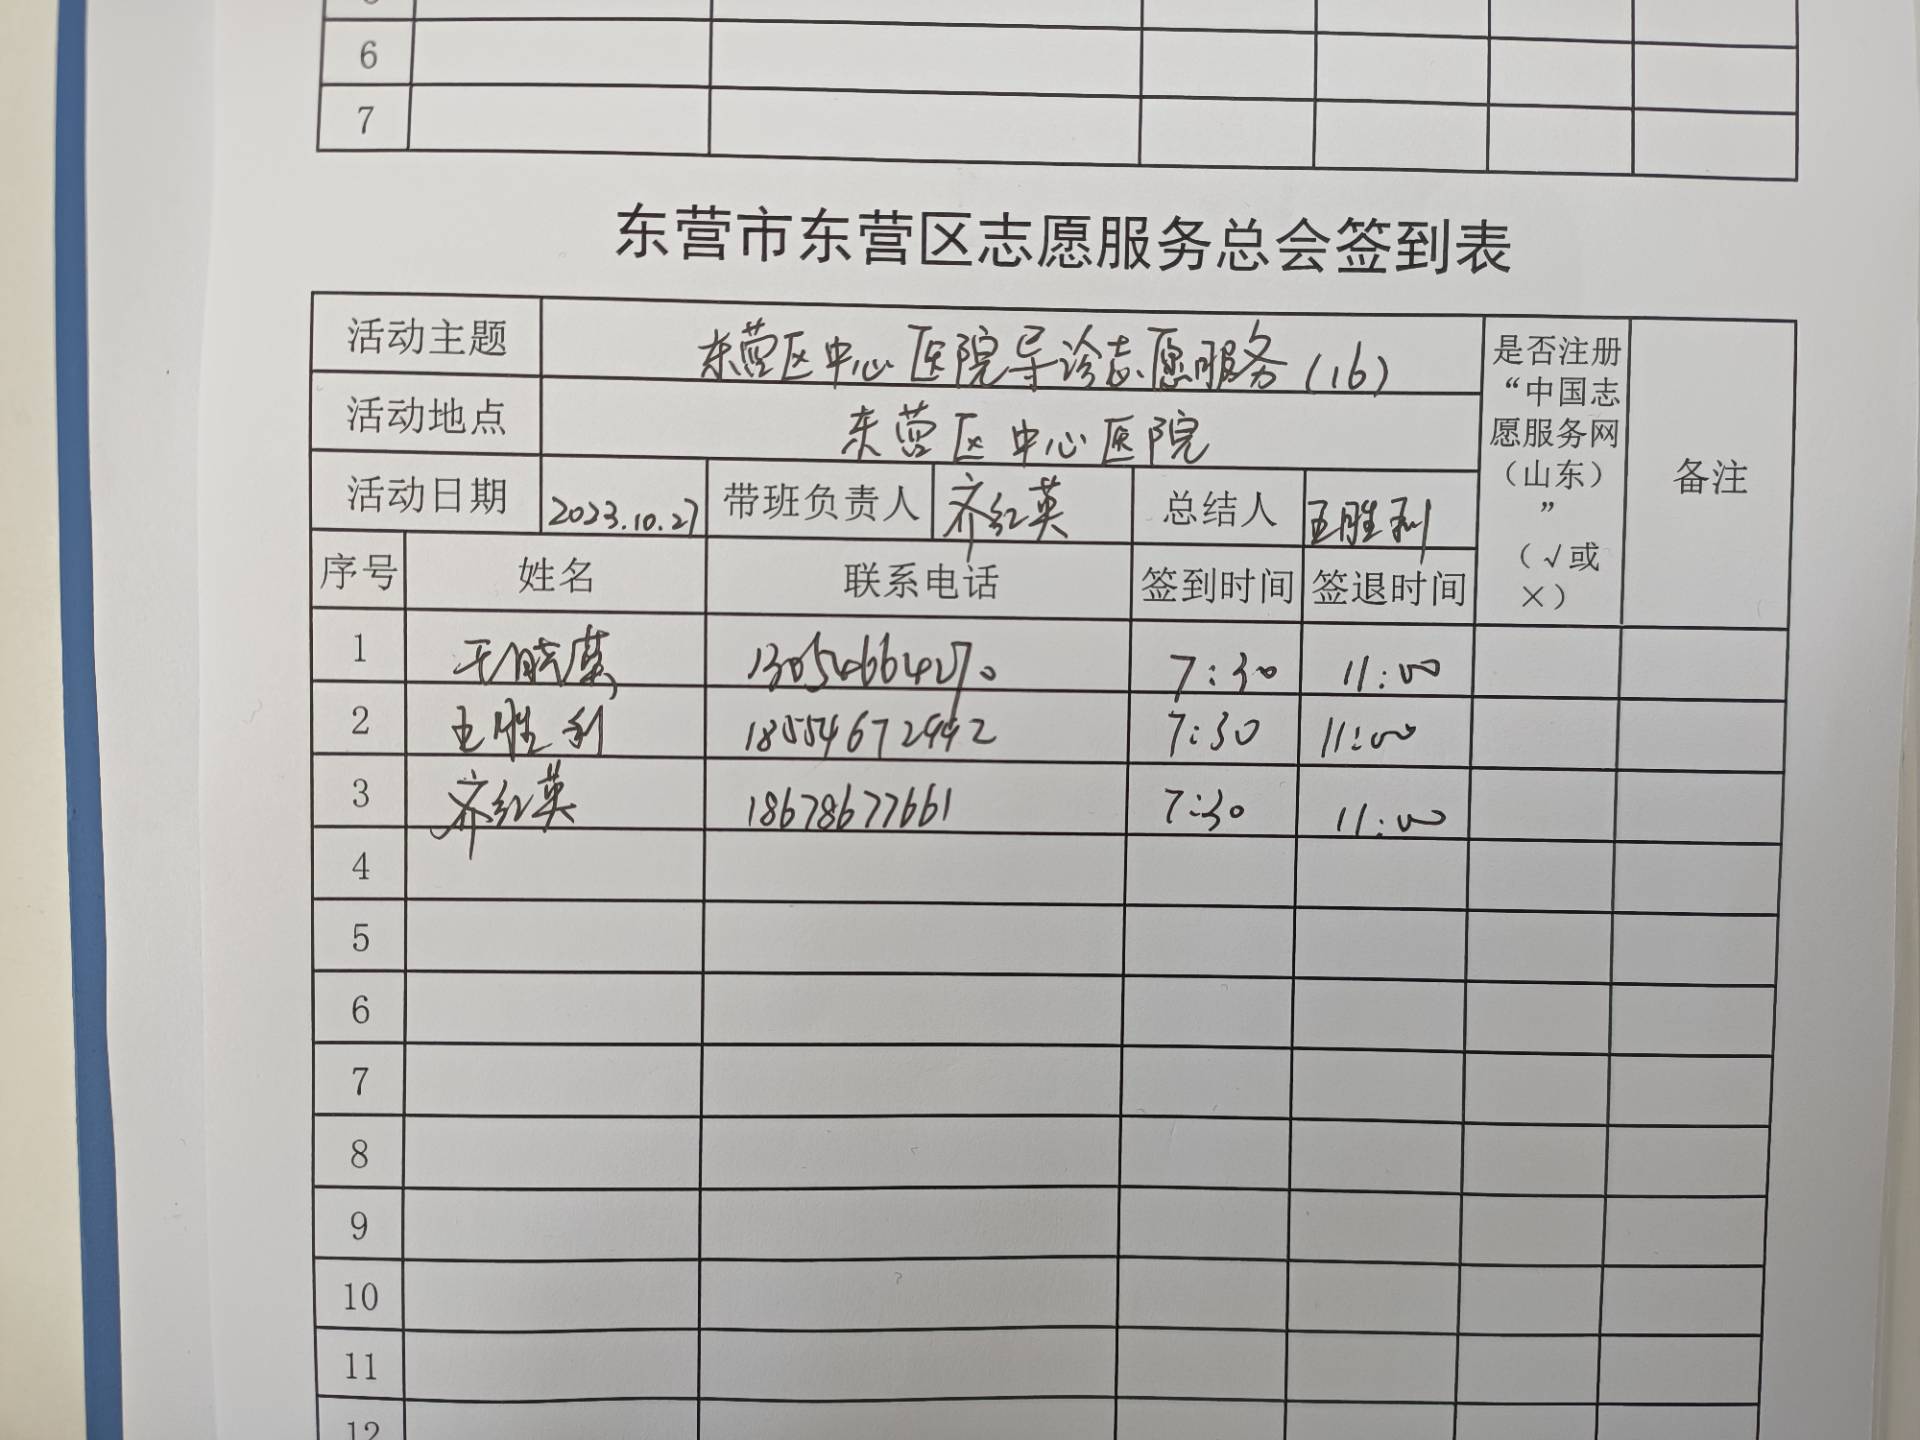 6
7
东营市东营区志愿服务总会签到表
活动主题 东营区中心医院导诊志愿服务(16)
活动地点 东营区中心医院
活动日期 2023.10.27 带班负责人 齐红英 总结人 王胜利
是否注册
“中国志
愿服务网
(山东)
”
(√或
×)
备注
序号 姓名 联系电话 签到时间 签退时间
1 13054664270 7:30 11:00
2 王胜利 18554672442 7:30 11:00
3 齐红英 18678677661 7:30 11:00
4
5
6
7
8
9
10
11
12